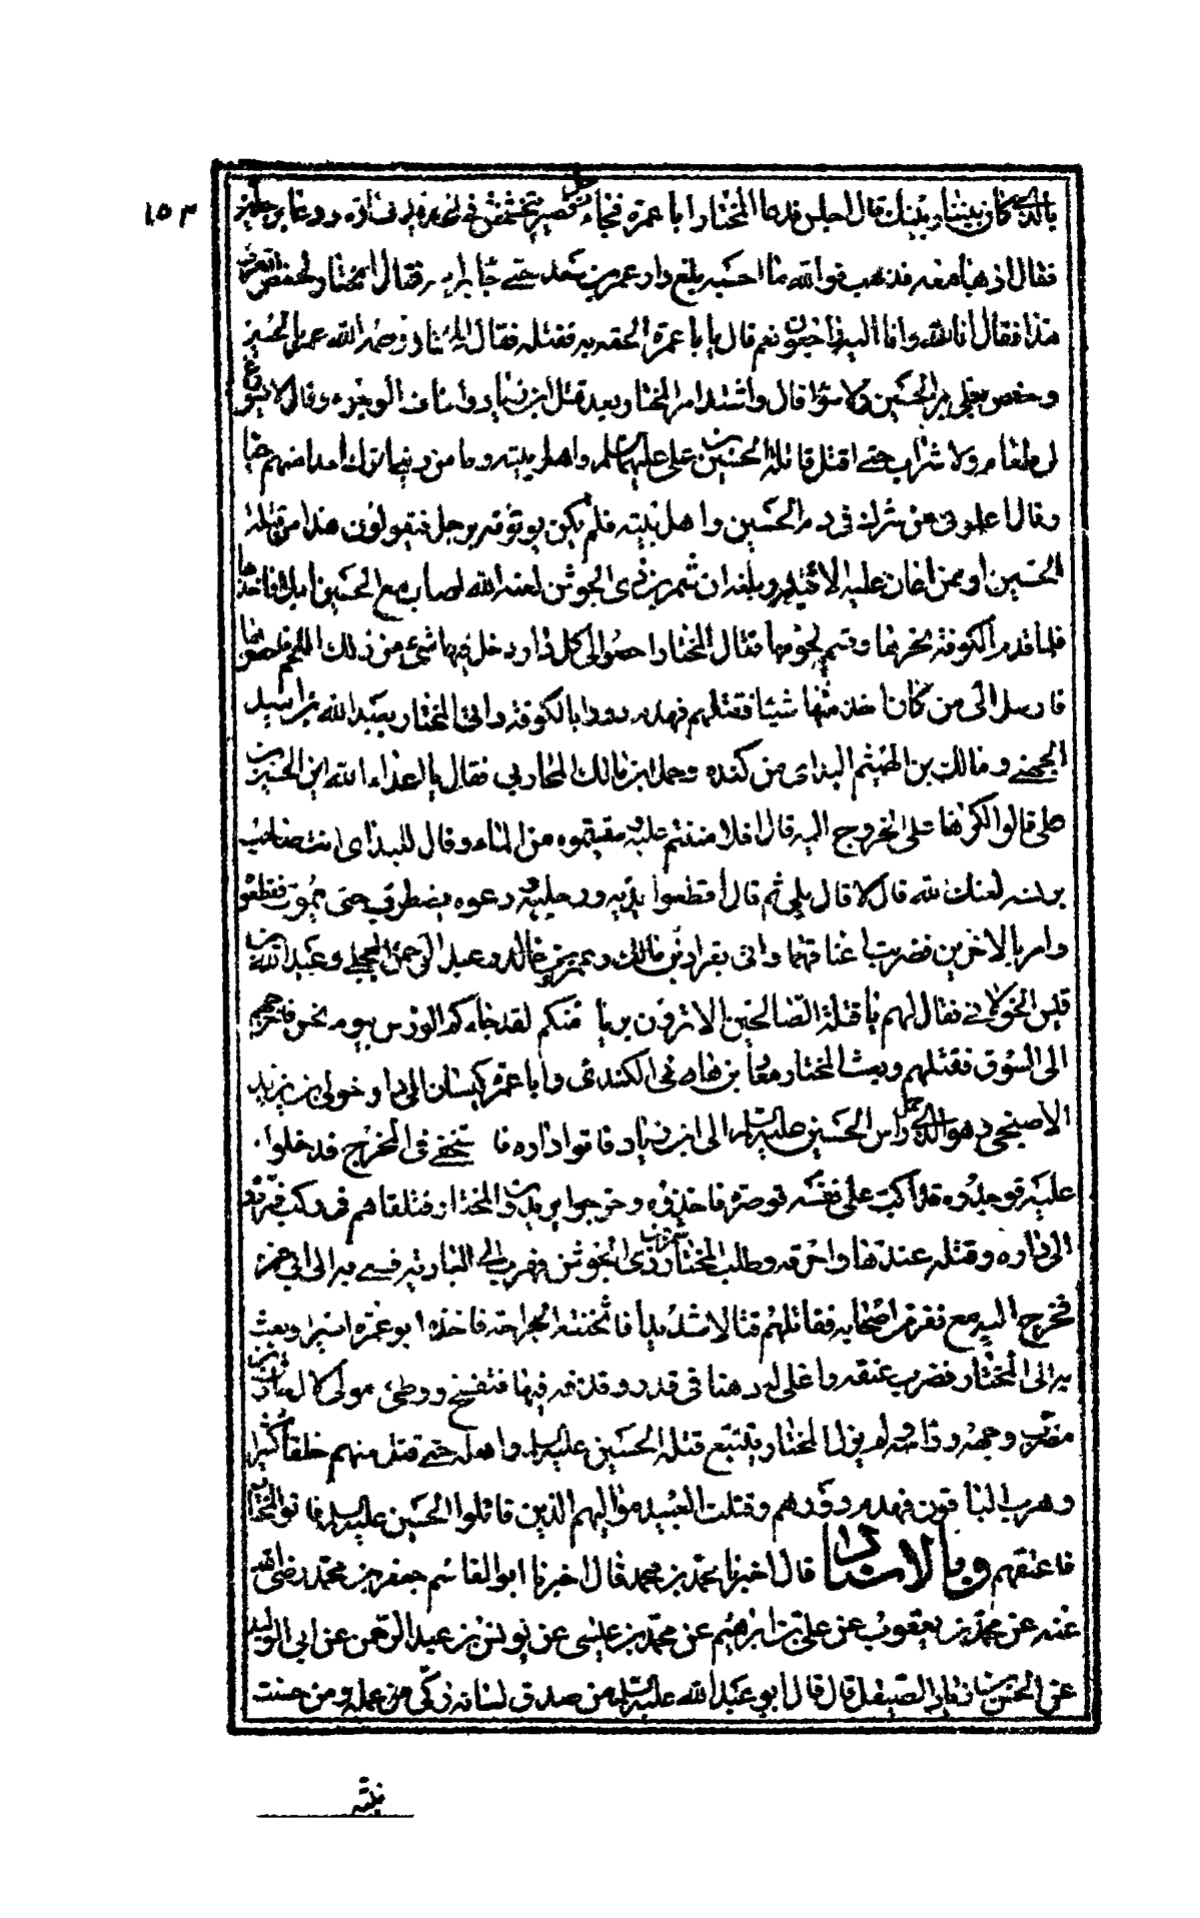 ١٥٣
بالذي كان بيننا وبينك قال اجلس فدعا المختار ابا عمرة فجاء رجل قصير يتخشخش في الحديد فساره ودعا برجلين
فقال اذهبا معه فذهب فوالله ما احسبه بلغ دار عمر بن سعد حتى جاء براسه فقال المختار لحفص اتعرف
هذا فقال انا لله وانا اليه راجعون نعم قال يا با عمرة الحقه به فقتله فقال المختار رحمه الله عمر بالحسين
وحفص بعلي بن الحسين ولا سواء قال واشتد امر المختار بعد قتل ابن زياد واخاف الوجوه وقال لا يسوغ
لي طعام ولا شراب حتى اقتل قتلة الحسين بن علي عليهما السلم واهل بيته وما من ديني اترك احدا منهم حيا
وقال اعلموني من شرك في دم الحسين واهل بيته فلم يكن يوتونه برجل فيقولون هذا من قتلة
الحسين او ممن اعان عليه الا قتله وبلغه ان شمر بن ذي الجوشن لعنه الله اصاب مع الحسين ابلا فاخذها
فلما قدم الكوفة نحرها وقسم لحومها فقال المختار احصوا لي كل دار دخل فيها شيء من ذلك اللحم فاحصوها
فارسل الى من كان اخذ منها شيئا فقتلهم وهدم دورا بالكوفة واتى المختار بعبد الله بن اسيد
الجهني ومالك بن الهيثم البداي من كنده وحمل بن مالك المحاربي فقال يا اعداء الله اين الحسين بن
علي قالوا اكرهنا على الخروج اليه قال افلا مننتم عليه وسقيتموه من الماء وقال للبداي انت صاحب
برنسه لعنك الله قال لا قال بلى ثم قال اقطعوا يديه ورجليه ودعوه يضطرب حتى يموت فقطعوه
وامر بالاخرين فضربت اعناقهما واتى بقراد بن مالك وعمرو بن خالد وعبد الرحمن البجلي وعبد الله بن
قيس الخولاني فقال لهم يا قتلة الصالحين الا ترون بريا منكم لقد جاءكم الورس بيوم نحس فاخرجهم
الى السوق فقتلهم وبعث المختار معاذ بن هاني الكندي وابا عمرة كيسان الى دار خولي بن يزيد
الاصبحي وهو الذي حمل راس الحسين عليه السلم الى ابن زياد فاتوا داره فاستخفى في المخرج فدخلوا
عليه فوجدوه قد اكب على نفسه قوصرة فاخذوه وخرجوا يريدون المختار فتلقاهم في ركب فردوه
الى داره وقتله عندها واحرقه وطلب المختار شمر بن ذي الجوشن فهرب الى البادية فسعى به الى ابي عمرة
فخرج اليه مع نفر من اصحابه فقاتلهم قتالا شديدا فاثخنته الجراحة فاخذه ابو عمرة اسيرا وبعث
به الى المختار فضرب عنقه واغلى له دهنا في قدر وقذفه فيها فتفسخ ووطئ مولى لال حارثة بن
مضرب وجهه وراسه ولم يزل المختار يتتبع قتلة الحسين عليه السلم واهله حتى قتل منهم خلقا كثيرا
وهرب الباقون فهدم دورهم وقتلت العبيد مواليهم الذين قاتلوا الحسين عليه السلم فاتوا المختار
فاعتقهم وبالاسناد قال اخبرنا محمد بن محمد قال اخبرنا ابو القاسم جعفر بن محمد رضي الله
عنه عن محمد بن يعقوب عن علي بن ابراهيم عن محمد بن عيسى عن يونس بن عبد الرحمن عن ابي الوليد
عن الحسن بن زياد الصيقل قال قال ابو عبد الله عليه السلم من صدق لسانه زكى عمله ومن حسنت
نيته